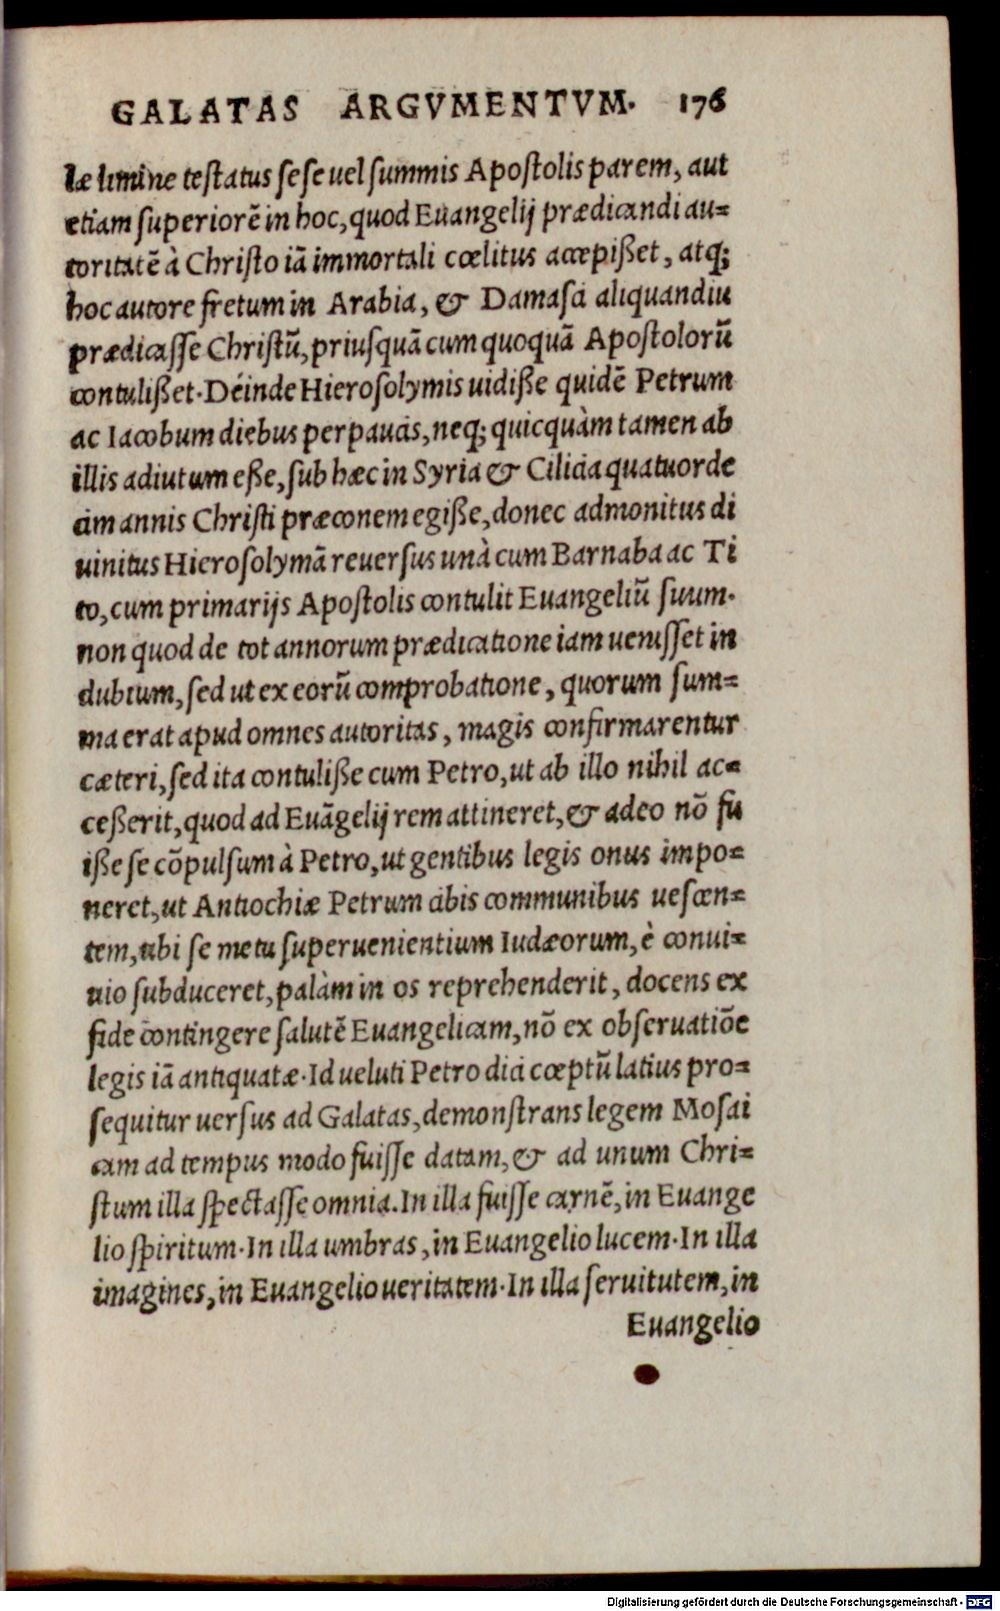 GALATAS ARGVMENTVM. 176
læ limine testatus sese uel summis Apostolis parem, aut
etiam superiorē in hoc, quod Euangelij prædicandi au=
toritatē à Christo iā immortali cœlitus accepißet, atq;
hoc autore fretum in Arabia, & Damasci aliquandiu
prædicasse Christū, priusquā cum quoquā Apostolorū
contulißet. Deinde Hierosolymis uidiße quidē Petrum
ac Iacobum diebus perpaucis, neq; quicquàm tamen ab
illis adiutum eße, sub hæc in Syria & Cilicia quatuorde
cim annis Christi præconem egiße, donec admonitus di
uinitus Hierosolymā reuersus unà cum Barnaba ac Ti
to, cum primarijs Apostolis contulit Euangeliū suum.
non quod de tot annorum prædicatione iam uenisset in
dubium, sed ut ex eorū comprobatione, quorum sum=
ma erat apud omnes autoritas, magis confirmarentur
cæteri, sed ita contuliße cum Petro, ut ab illo nihil ac=
ceßerit, quod ad Euāgelij rem attineret, & adeo nō fu
iße se cōpulsum à Petro, ut gentibus legis onus impo=
neret, ut Antiochiæ Petrum cibis communibus uescen=
tem, ubi se metu superuenientium Iudæorum, è conui=
uio subduceret, palàm in os reprehenderit, docens ex
fide contingere salutē Euangelicam, nō ex obseruatiōe
legis iā antiquatæ. Id ueluti Petro dici cœptū latius pro=
sequitur uersus ad Galatas, demonstrans legem Mosai
cam ad tempus modo fuisse datam, & ad unum Chri=
stum illa spectasse omnia. In illa fuisse carnē, in Euange
lio spiritum. In illa umbras, in Euangelio lucem. In illa
imagines, in Euangelio ueritatem. In illa seruitutem, in
Euangelio
Digitalisierung gefördert durch die Deutsche Forschungsgemeinschaft - DFG